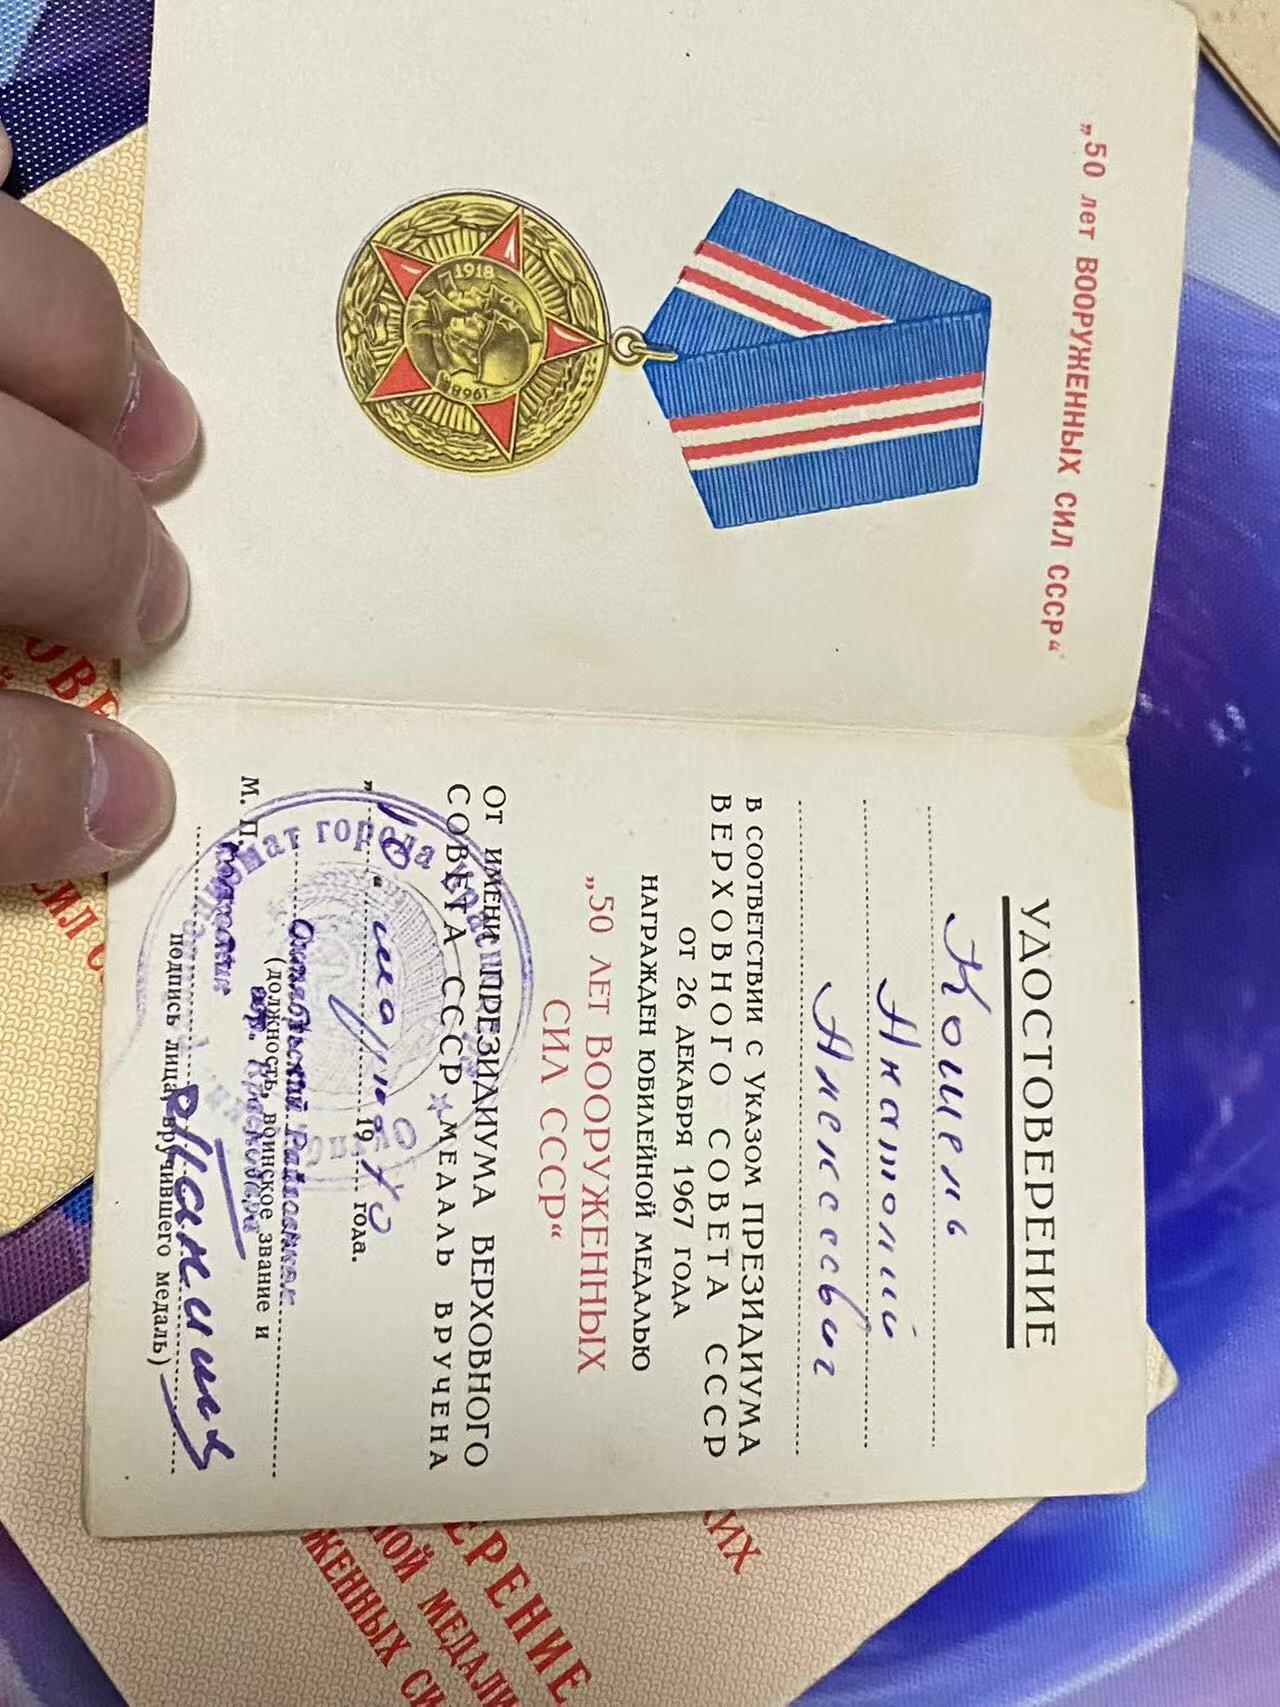 „50 лет ВООРУЖЕННЫХ СИЛ СССР“
1918
1968
УДОСТОВЕРЕНИЕ
Кошель
Анатолий
Алексеевич
В СООТВЕТСТВИИ С УКАЗОМ ПРЕЗИДИУМА
ВЕРХОВНОГО СОВЕТА СССР
ОТ 26 ДЕКАБРЯ 1967 ГОДА
НАГРАЖДЕН ЮБИЛЕЙНОЙ МЕДАЛЬЮ
„50 ЛЕТ ВООРУЖЕННЫХ
СИЛ СССР“
ОТ ИМЕНИ ПРЕЗИДИУМА ВЕРХОВНОГО
СОВЕТА СССР МЕДАЛЬ ВРУЧЕНА
марта 1970 года.
Октябрьский Райвоенком
(должность, воинское звание и
гор. Красноярска
М. П.
подпись лица, вручившего медаль)
города
ОВЕ
СИЛ С
КИХ
ЕРЕНИЕ
НОЙ МЕДАЛИ
ЖЕННЫХ СИ